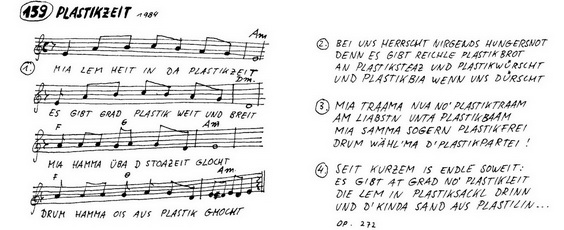 159 PLASTIKZEIT 1984
Am
1. MIA LEM HEIT IN DA PLASTIKZEIT
Dm.
ES GIBT GRAD PLASTIK WEIT UND BREIT
F G Am
MIA HAMMA ÜBA D STOAZEIT GLOCHT
F G Am
DRUM HAMMA OIS AUS PLASTIK GMOCHT
2. BEI UNS HERRSCHT NIRGENDS HUNGERSNOT
DENN ES GIBT REICHLE PLASTIKBROT
AN PLASTIKSTEAZ UND PLASTIKWÜRSCHT
UND PLASTIKBIA WENN UNS DÜRSCHT
3. MIA TRAAMA NUA NO' PLASTIKTRAAM
AM LIABSTN UNTA PLASTIKBAAM
MIA SAMMA SOGERN PLASTIKFREI
DRUM WÄHL'MA D'PLASTIKPARTEI !
4. SEIT KURZEM IS ENDLE SOWEIT:
ES GIBT AT GRAD NO' PLASTIKLEIT
DIE LEM IN PLASTIKSACKL DRINN
UND D'KINDA SAND AUS PLASTILIN...
OP. 272